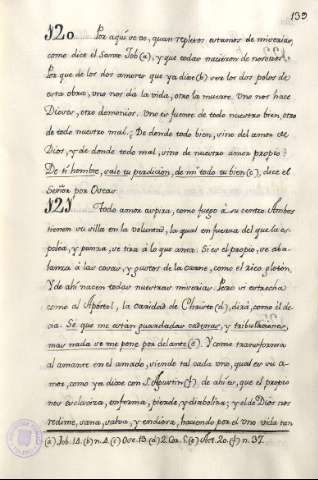 139
120 Por aquí veo, quan repletos estamos de miserias,
como dice el Santo Job (a), y que todas nacieron de nosotros.
Por que de los dos amores que ya dixe (b) vere los dos polos de
esta obra, uno nos da la vida, otro la muerte. Uno nos hace
Dioses, otro demonios. Uno es fuente de todo nuestro bien, otro
de todo nuestro mal. De donde todo bien, sino del amor de
Dios, y de donde todo mal, sino de nuestro amor propio?
De ti hombre, sale tu perdicion, de mi todo tu bien (c), dice el
Señor por Oseas.
121 Todo amor aspira, como fuego à su centro. Ambos
tienen su silla en la voluntad, la qual en fuerza del que la es-
polea, y punza, se tira à lo que ama. Si es el propio, se aba-
lanza à las cosas, y gustos de la carne, como el rico gloton.
Y de ahí nacen todas nuestras miserias. Pero si estrecha
como al Apostol, la caridad de Christo (d), dirá, como él de-
cia. Sé que me están guardadas cadenas, y tribulaciones,
mas nada se me pone por delante (e). Y como transforma
al amante en el amado, siendo tal cada uno, qual es su a-
mor, como ya dixe con S. Agustin (f), de ahí es, que el propio
nos esclaviza, enferma, pierde, y diaboliza; y el de Dios nos
redime, sana, salva, y endiosa, haciendo por el uno vida tan
(a) Job. 14. (b) n. 4. (c) Ose. 13. (d) 2. Cor. 5. (e) Act. 20. (f) n. 37.